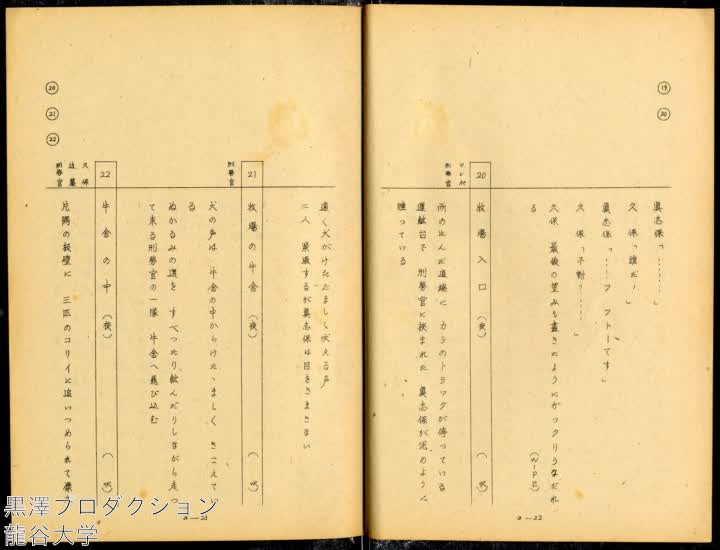 ⑲
⑳
眞志保「………」
久　保「誰だ！」
眞志保「……フ　フトーです」
久　保「不動？……」
久保　最後の望みも盡きたようにガックリうなだれ
る
（WIPE）
20
牧場入口（夜）
刑務官
雨の止んだ道端に　カラのトラックが停っている
運転台で　刑務官に挾まれた　眞志保が泥のように
睡っている
a—22
⑳
㉑
㉒
遠く犬がけたたましく吠える声
二人　緊張するが眞志保は目をさまさない
21
牧場の牛舎（夜）
刑務官
犬の声は　牛舎の中からけたゝましく　きこえてい
る
ぬかるみの道を　すべったり転んだりしながら走っ
て来る刑務官の一隊　牛舎へ飛び込む
22
牛舎の中（夜）
久保
刑務官
片隅の板壁に　三匹のコリイに追いつめられて
a—23
黒澤プロダクション
龍谷大学